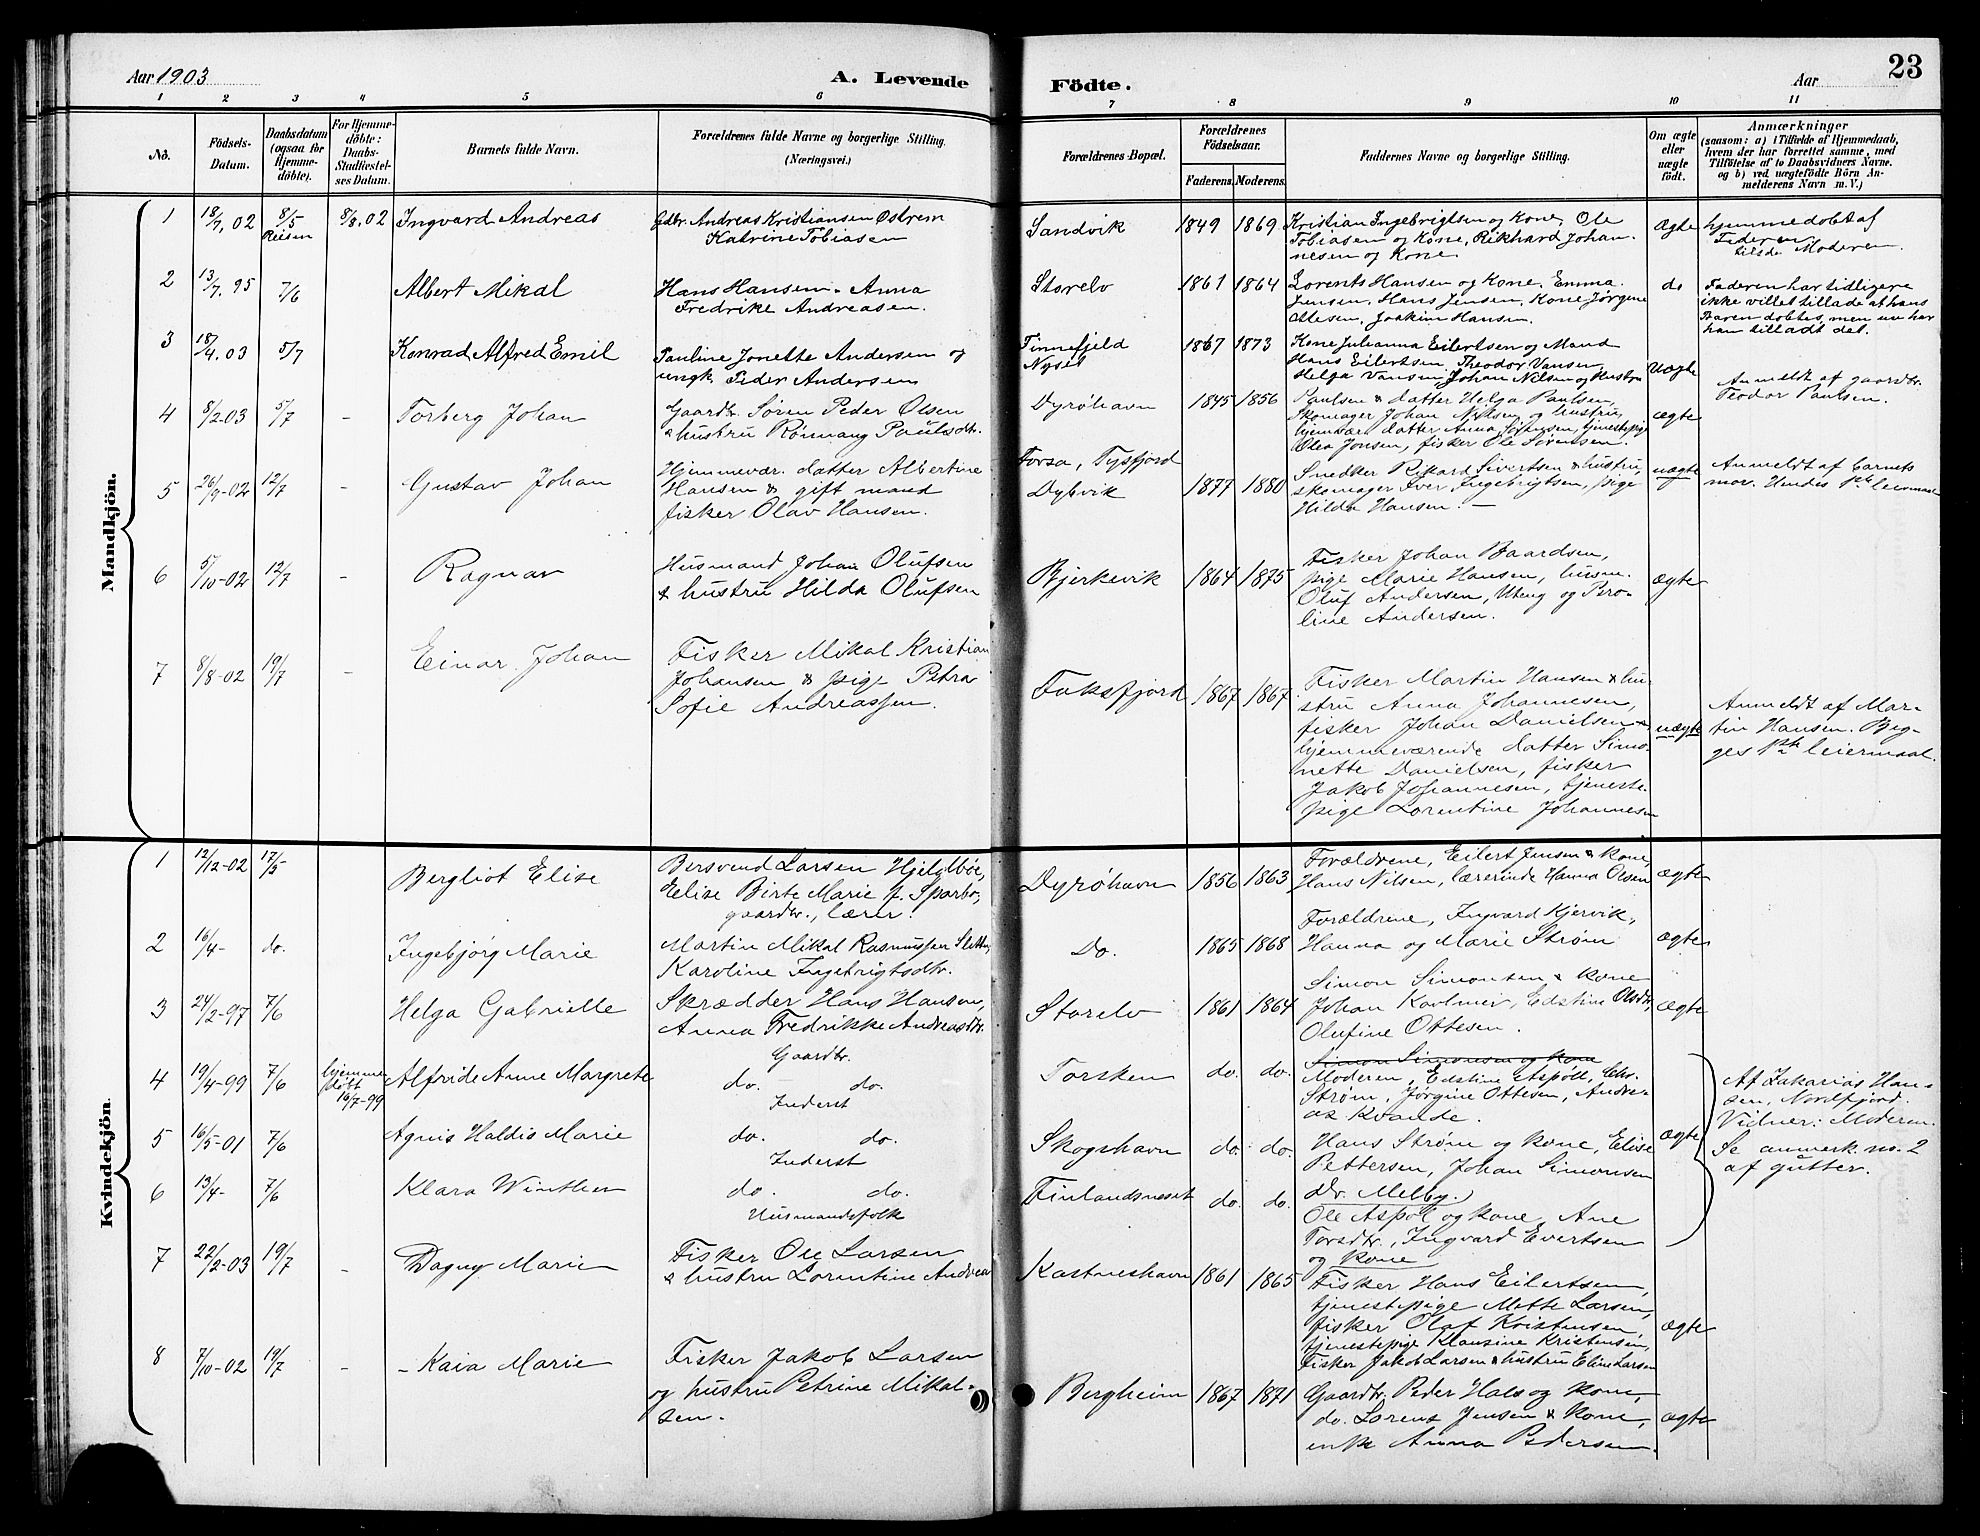 Aar 1903
A. Levende
Födte.
Aar
23
1 2 3 4 5 6 7 8 9 10 11
No.
Födsels-
Datum.
Daabsdatum
(ogsaa for
Hjemme-
döbte).
For Hjemme-
döbte:
Daabs-
Stadfæstel-
ses Datum.
Barnets fulde Navn.
Forældrenes fulde Navne og borgerlige Stilling.
(Næringsvei.)
Forældrenes Bopæl.
Forældrenes
Födselsaar.
Faderens. Moderens.
Faddernes Navne og borgerlige Stilling.
Om ægte
eller
uægte
födt.
Anmærkninger
(saasom: a) i Tilfælde af Hjemmedaab,
hvem der har forrettet samme, med
Tilföielse af to Daabsvidners Navne.
og b) ved uægtefödte Börn An-
melderens Navn m. V.)
Mandkjön.
1 18/7, 02 8/5 8/8.02 Ingvard Andreas
Gdbr. Andreas Kristiansen Østrem
Katrine Tobiasen
Sandvik 1849 1869
Kristian Ingebrigtsen og Kone, Ole
Tobiasen og Kone, Rikhard Johan-
nesen og Kone
Ægte
hjemmedobt af
Moderen.
2 13/7. 95 7/6 Albert Mikal
Hans Hansen - Anna
Fredrike Andreasen.
Storelv 1861 1864
Lorents Hansen og Kone, Emma
Jensen, Hans Jensen, Kone Jørgine
Olesen, Joakim Hansen.
do
Faderen har tidligere
ikke villet tillade at hans
Børen dobtes, men nu har
han tilladt det.
3 18/4.03 5/7 Konrad Alfred Emil
Pauline Jonette Andersen og
ungk. Peder Andersen
Finnefjeld
Nyset
1867 1873
Kone Julianna Eilertsen og Mand
Hans Eilertsen, Theodor Vansen,
Helga Vansen, Johan Nilsen og Hustru
Uægte
Anmeldt af gaardbr.
Teodor Paulsen.
4 8/2.03 5/7 - Torberg Johan
Gaardbr. Søren Peder Olsen
& hustru Rønnaug Paulsdtr.
Dyröhavn 1845 1856
Paulsen & datter Helga Paulsen,
skomager Johan Nilsen og hustru,
hjemmevær. datter Anna Sørensen, tjenestepige
Olea Jonsen, fisker Ole Sørensen.
ægte
5 26/9-02 12/7 - Gustav Johan
Hjemmevær. datter Albertine
Hansen & gift mand
fisker Olav Hansen.
Forsa, Tysfjord
Dybvik
1877 1880
Snedker Rikard Sivertsen & hustru,
skomager Iver Ingebrigtsen, pige
Hilda Hansen. -
uægte
Anmeldt af barnets
mor. Hendes 1ste leiermaal
6 5/10-02 12/7 - Ragnar
Husmand Johan Olufsen
& hustru Hilda Olufsen
Bjerkevik 1864 1875
Fisker Johan Baardsen,
pige Marie Hansen, husm.
Oluf Andersen, Uteng og Bero-
line Andersen.
ægte
7 8/8-02 19/7 - Einar Johan
Fisker Mikal Kristian
Johansen & pige Petra
Sofie Andreassen.
Faksfjord 1867 1867
Fisker Martin Hansen & hu-
stru Anna Johannesen,
fisker Johan Danielsen &
hjemmeværende datter Simo-
nette Danielsen, fisker
Jakob Johannesen, tjeneste-
pige Lorentine Johannesen
uægte
Anmeldt af Mar-
tin Hansen. Beg-
ges 1ste leiermaal.
Kvindekjön.
1 12/12-02 17/5 Bergliot Elise
Bersvend Larsen Hjelmböe,
Elise Birte Marie f. Sparbo,
gaardbr., lærer.
Dyröhavn 1856 1863
Forældrene, Eilert Jensen & kone
Hans Nilsen, lærerinde Hanna Olsen
ægte
2 16/4- do. Ingebjörg Marie
Martin Mikal Rasmussen
Karoline Ingebrigtsdtr.
Do. 1865 1868
Forældrene, Ingvard Kjervik,
Hanna og Marie Ström
ægte
3 24/2-97 7/6 Helga Gabrielle
Skrædder Hans Hansen,
Anna Fredrikke Andreasdtr.
Gaardbr.
Storelv 1861 1864
Simon Simonsen & kone
Johan Kodmer, Edstine Olsdtr,
Olufine Ottesen.
Ægte
4 19/4-99 7/6 hjemme
döbt
16/7-99
Alfride Anne Margrete
do. do.
Inderst
Torsken do. do.
Simon Simonsen og kone
Moderen, Edstine Aspöll, Chr.
Ström, Jørgine Ottesen, Andre-
as Kvande.
Af Zakarias Han-
sen, Nordfjord.
Vidner: Moderen.
5 16/5-01 7/6 Agnis Haldis Marie
do. do.
Inderst
Skogshavn do. do.
Hans Ström og kone, Elise
Pettersen, Johan Simonsen
ægte
Se anmerk. no. 2
af gutter.
6 13/4- 7/6 Klara Winther
do. do.
Husmandsfolk
Finlandsneset do. do.
Dr. Melby.
Ole Aspöl og kone, Ane
Torsdtr., Ingvard Evertsen
og kone
7 22/2-03 19/7 - Dagny Marie
Fisker Ole Larsen
& hustru Lorentine Andrea
Kastneshavn 1861 1865
Fisker Hans Eilertsen,
tjenestepige Mette Larsen,
fisker Olaf Kristensen,
tjenestepige Hansine Kristensen,
Fisker Jakob Larsen & hustru Eline Larsen
ægte
8 7/10-02 19/7 - Kaia Marie
Fisker Jakob Larsen
og hustru Petrine Mikal-
sen.
Bergheim 1867 1871
Gaardbr. Peder Hals og kone,
do. Lorens Jensen & kone,
enke Anna Pedersen.
ægte